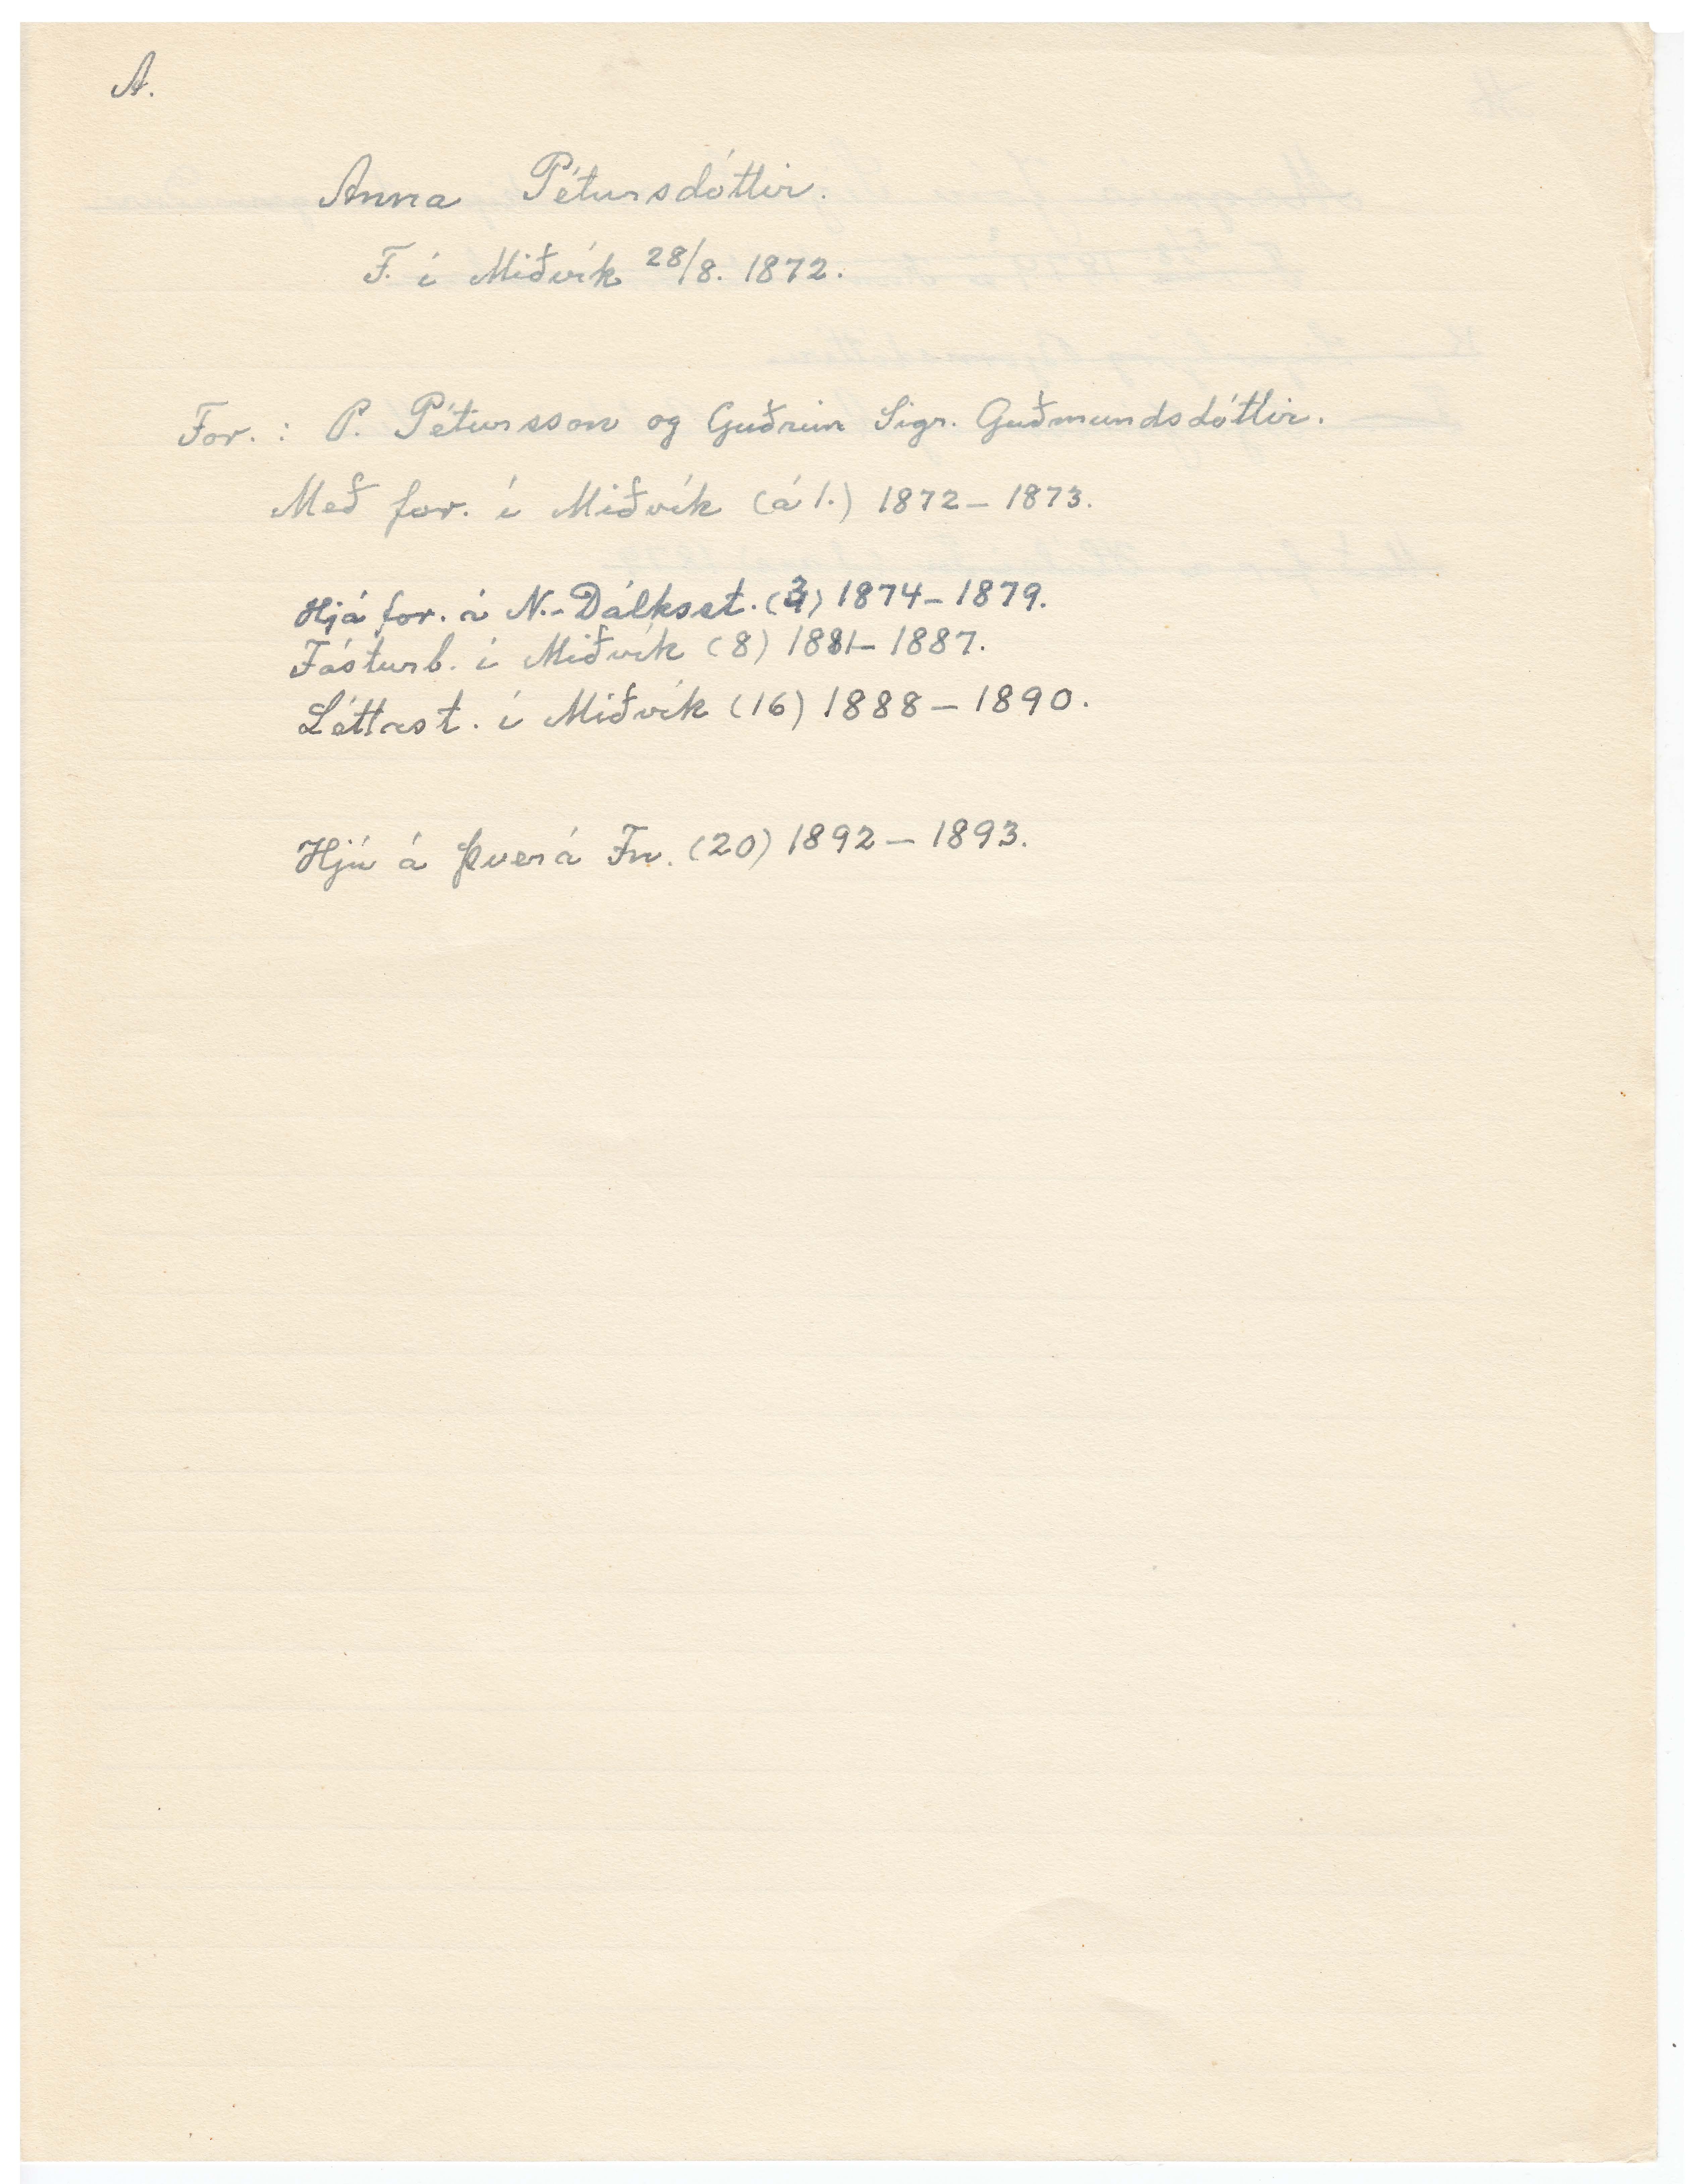 A.
Anna Pétursdóttir.
F. í Miðvík 28/8. 1872.
For. : P. Pétursson og Guðrún Sigr. Guðmundsdóttir.
Með for. í Miðvík (á 1.) 1872 – 1873.
Hjá for. á N.-Dálksst. (3) 1874 – 1879.
Fósturb. í Miðvík (8) 1881 – 1887.
Léttast. í Miðvík (16) 1888 – 1890.
Hjú á Þverá Fn. (20) 1892 – 1893.